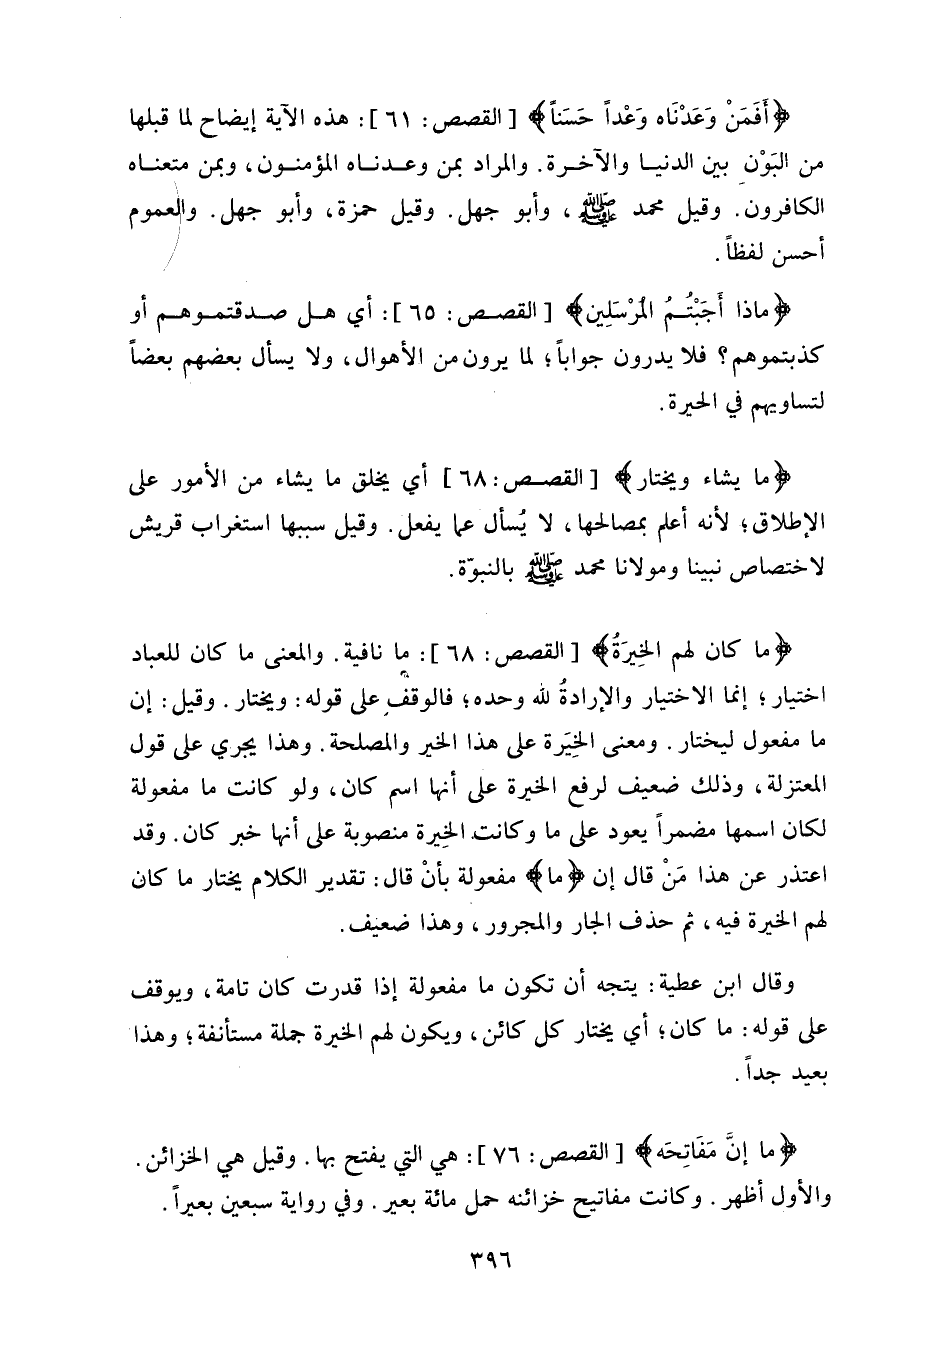 ﴿أَفَمَنْ وَعَدْنَاه وَعْداً حَسَناً﴾ [القصص: ٦١]: هذه الآية إيضاح لما قبلها
من البَوْن بين الدنيا والآخرة. والمراد بمن وعدناه المؤمنون، وبمن متعناه
الكافرون. وقيل محمد ﷺ، وأبو جهل. وقيل حمزة، وأبو جهل. والعموم
أحسن لفظاً.
﴿ماذا أَجَبْتُمُ المُرْسَلِين﴾ [القصص: ٦٥]: أي هل صدقتموهم أو
كذبتموهم؟ فلا يدرون جواباً؛ لما يرون من الأهوال، ولا يسأل بعضهم بعضاً
لتساويهم في الحيرة.
﴿ما يشاء ويختار﴾ [القصص: ٦٨] أي يخلق ما يشاء من الأمور على
الإطلاق؛ لأنه أعلم بمصالحها، لا يُسأل عما يفعل. وقيل سببها استغراب قريش
لاختصاص نبينا ومولانا محمد ﷺ بالنبوّة.
﴿ما كان لهم الخِيرَةُ﴾ [القصص: ٦٨]: ما نافية. والمعنى ما كان للعباد
اختيار؛ إنما الاختيار والإرادةُ لله وحده؛ فالوقف على قوله: ويختار. وقيل: إن
ما مفعول ليختار. ومعنى الخِيَرة على هذا الخير والمصلحة. وهذا يجري على قول
المعتزلة، وذلك ضعيف لرفع الخيرة على أنها اسم كان، ولو كانت ما مفعولة
لكان اسمها مضمراً يعود على ما وكانت الخِيرة منصوبة على أنها خبر كان. وقد
اعتذر عن هذا مَنْ قال إن ﴿ما﴾ مفعولة بأنْ قال: تقدير الكلام يختار ما كان
لهم الخيرة فيه، ثم حذف الجار والمجرور، وهذا ضعيف.
وقال ابن عطية: يتجه أن تكون ما مفعولة إذا قدرت كان تامة، ويوقف
على قوله: ما كان؛ أي يختار كل كائن، ويكون لهم الخيرة جملة مستأنفة؛ وهذا
بعيد جداً.
﴿ما إنَّ مَفَاتِحَه﴾ [القصص: ٧٦]: هي التي يفتح بها. وقيل هي الخزائن.
والأول أظهر. وكانت مفاتيح خزائنه حمل مائة بعير. وفي رواية سبعين بعيراً.
٣٩٦